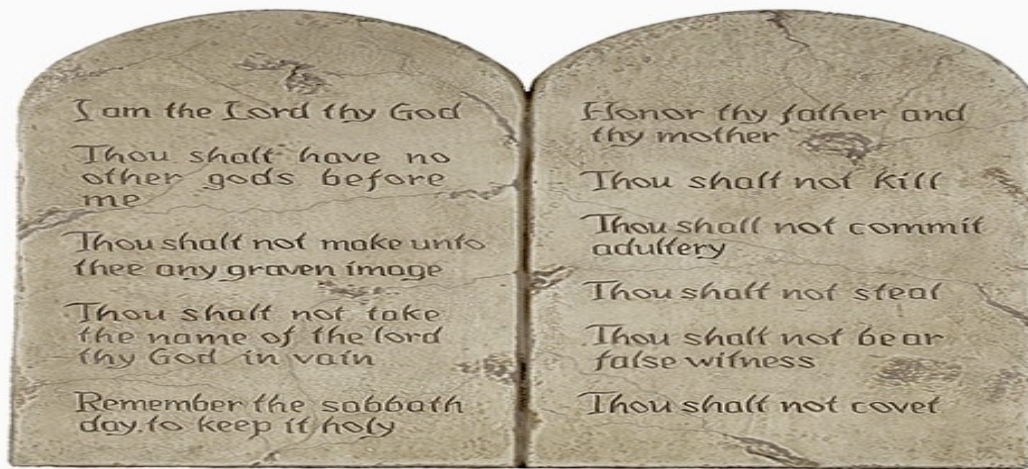 I am the Lord thy God
Thou shalt have no
other gods before
me
Thou shalt not make unto
thee any graven image
Thou shalt not take
the name of the lord
thy God in vain
Remember the sabbath
day, to keep it holy
Honor thy father and
thy mother
Thou shalt not kill
Thou shall not commit
adultery
Thou shalt not steal
Thou shalt not bear
false witness
Thou shalt not covet